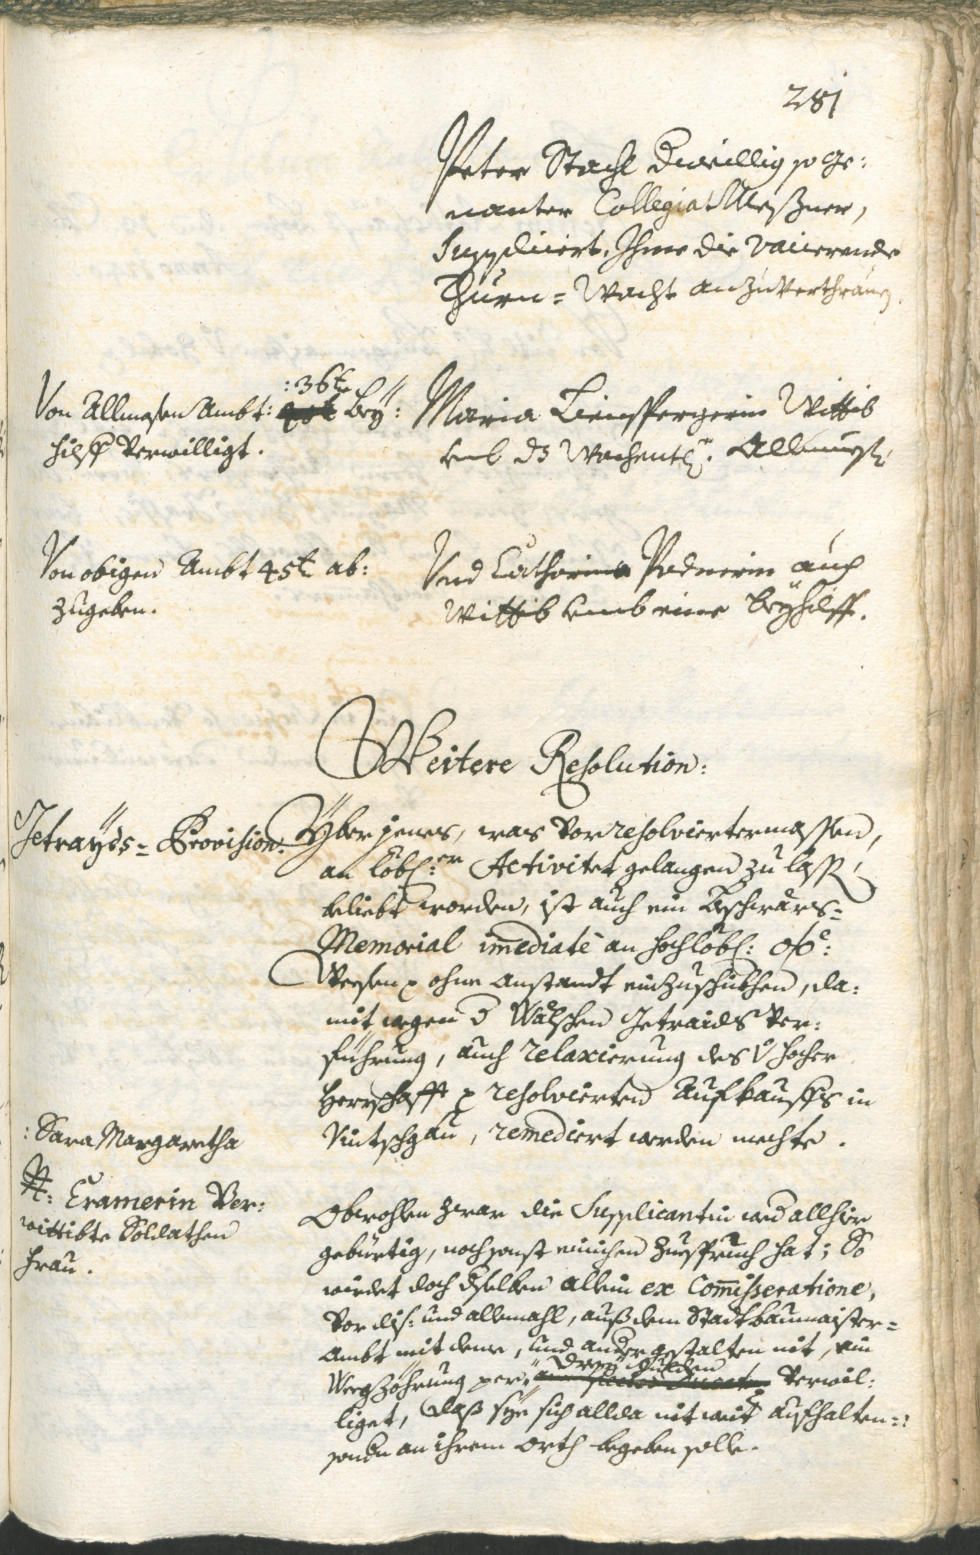 281
Peter Stachl dermillig so ge:
nanter Collegiat Meßner,
Suppliciert, Ihme die vacierende
Thurn= Wacht anzuverthrauen.
:36 kr
Von Allmosen Ambt: Bey:
hilff verwilligt.
Maria Lienspergerin Wittib
umb ds Wochentl: Allmueß:
Von obigen Ambt 45 kr ab:
zugeben.
Und Catharina Podnerin auch
Wittib umb eine Beyhilff.
Weitere Resolution:
Getrayds= Provision:
Yber jenes, was vorresolviertermassen,
an löbl:er Activitet gelangen zu lassen
beliebt worden, ist auch ein Bschwärs=
Memorial imediatè an hochlöbl: oö:
Weesen ohne anstandt einzuschükhen, da:
mit wegen d Wälschen Getraids Ver:
führung, auch relaxierung des hocher
Herrschafft resolvierten Aufkauffs in
Vintschgau, remediert werden mechte.
:Sara Margaretha
N: Cramerin Ver:
wittibte Soldathen
Frau.
Obwohlen zwar die Supplicantin weder allhier
gebürtig, noch sonst einichen Zuespruch hat; So
wirdet doch derselben allein ex Commisseratione,
vor diß: und allemahl, auß dem Stadtbaumaister=
Ambt mit deme, und andergestalten nit, ein
drey Gulden
Weegzöhrung per: verwil:
liget, daß sye sich allda nit weiters aufhalten=:
sondern an ihrem Orth begeben solle.